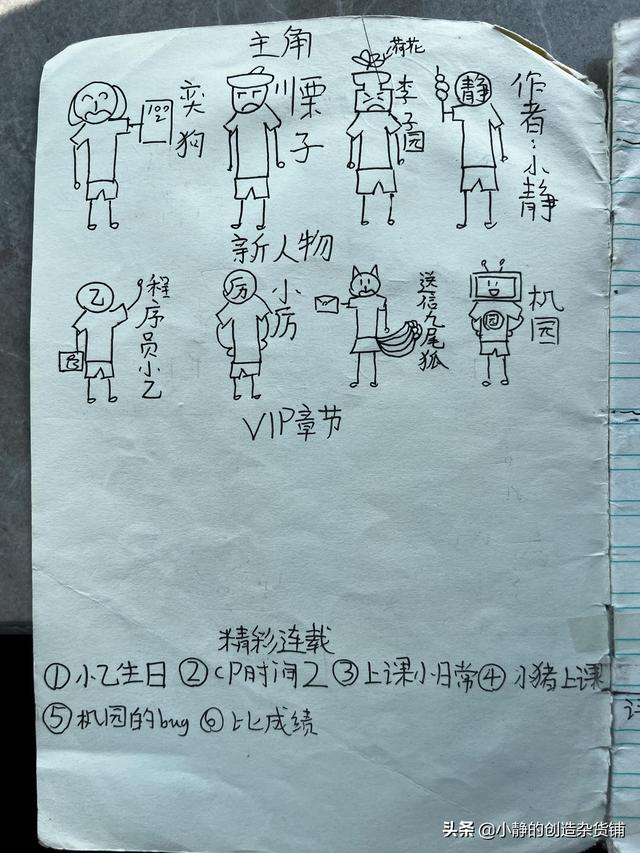 主角
奕狗
100
栗子
荷花
李子园
静
作者:小静
新人物
乙
程序员小乙
厉
小厉
送信九尾狐
园
机园
VIP章节
精彩连载
①小乙生日 ②CP时间2 ③上课小日常 ④小猪上课
⑤机园的bug ⑥比成绩
头条 @小静的创造杂货铺